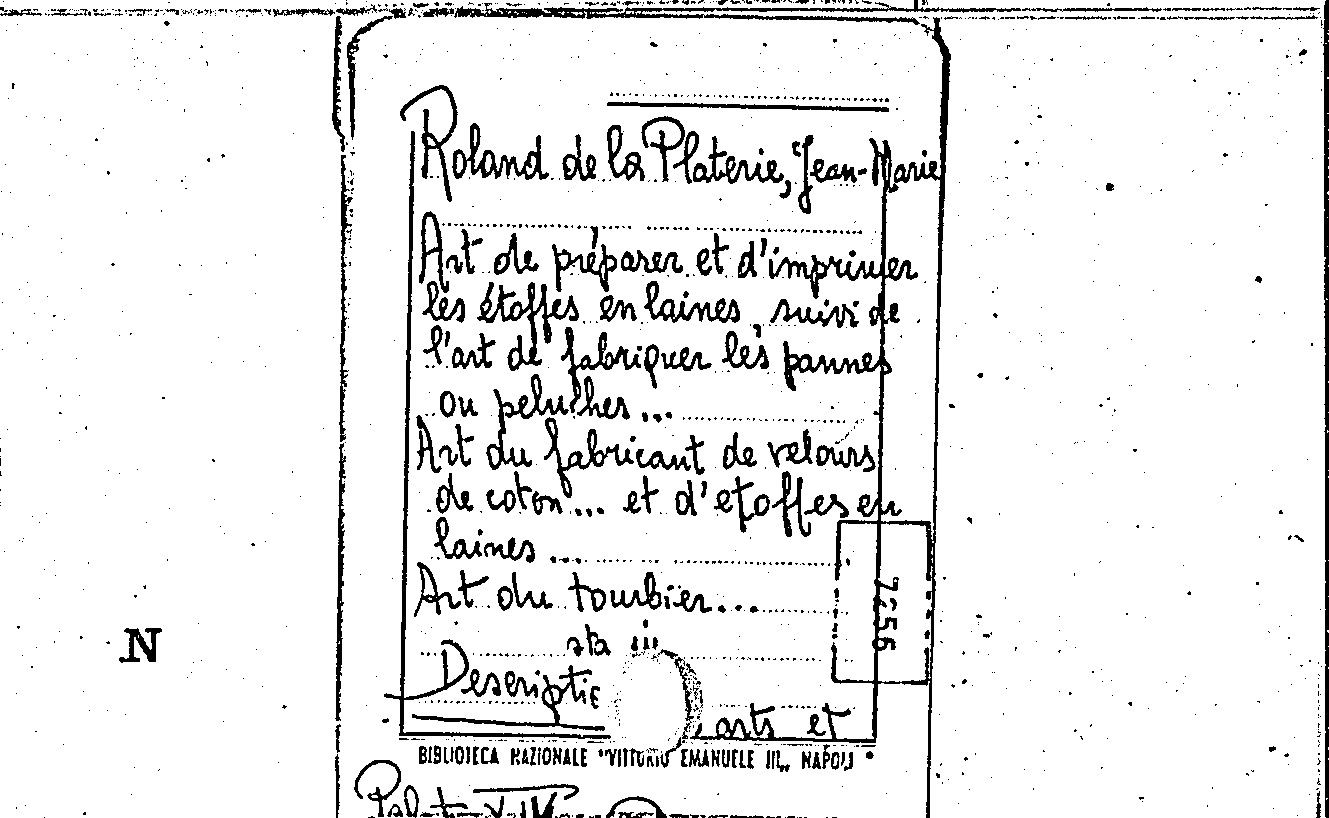 Roland de la Platerie, Jean-Marie
Art de préparer et d'imprimer
les étoffes en laines, suivi de
l'art de fabriquer les pannes
ou peluches...
Art du fabricant de velours
de coton... et d'etoffes en
laines...
Art du tourbier...
sta in
Descriptio arts et
BIBLIOTECA NAZIONALE "VITTORIO EMANUELE III„ NAPOLI
7656
N